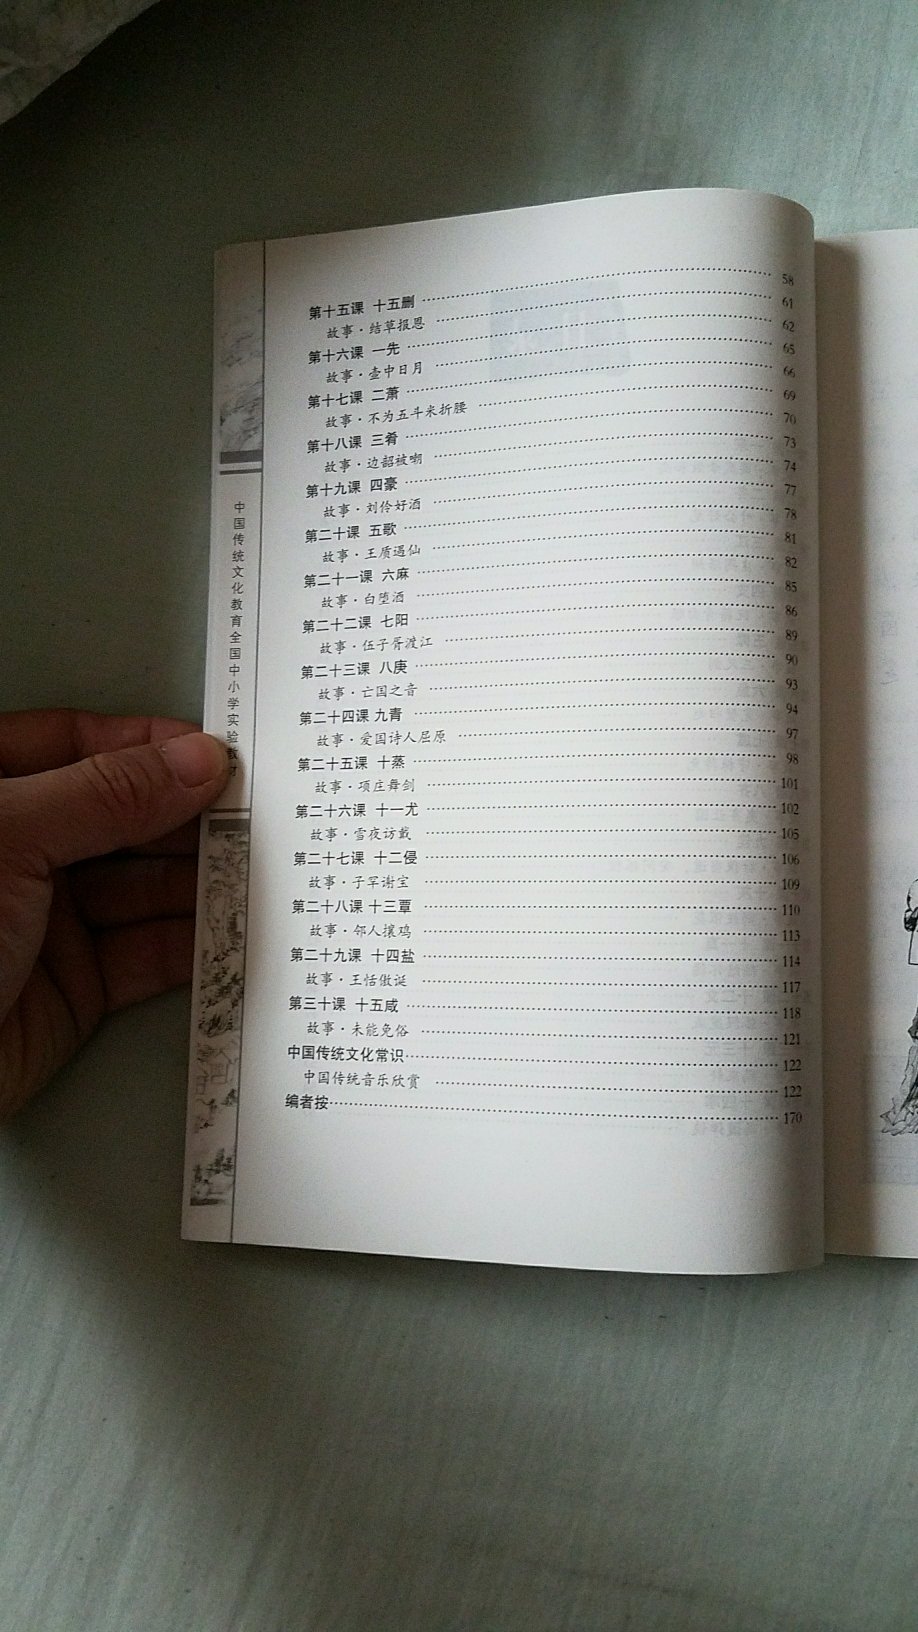 第十五课 十五删 58
故事·结草报恩 61
第十六课 一先 62
故事·壶中日月 65
第十七课 二萧 66
故事·不为五斗米折腰 69
第十八课 三肴 70
故事·边韶被嘲 73
第十九课 四豪 74
故事·刘伶好酒 77
第二十课 五歌 78
故事·王质遇仙 81
第二十一课 六麻 82
故事·白堕酒 85
第二十二课 七阳 86
故事·伍子胥渡江 89
第二十三课 八庚 90
故事·亡国之音 93
第二十四课 九青 94
故事·爱国诗人屈原 97
第二十五课 十蒸 98
故事·项庄舞剑 101
第二十六课 十一尤 102
故事·雪夜访戴 105
第二十七课 十二侵 106
故事·子罕谢宝 109
第二十八课 十三覃 110
故事·邻人攘鸡 113
第二十九课 十四盐 114
故事·王恬傲诞 117
第三十课 十五咸 118
故事·未能免俗 121
中国传统文化常识 122
中国传统音乐欣赏 122
编者按 170
中国传统文化教育全国中小学实验教材